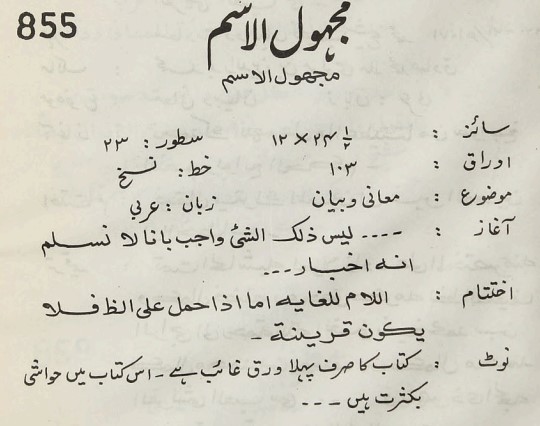 855
مجہول الاسم
مجھول الاسم
سائز : ۲۴ ½ × ۱۲ سطور : ۲۳
اوراق : ۱۰۳ خط : نسخ
موضوع : معانی و بیان زبان : عربی
آغاز : ---- لیس ذلک الشئ واجب بانا لا نسلم
انه اخبار ---
اختتام : اللام للغایه اما اذا حمل علی الظ فلا
یکون قرینة -
نوٹ : کتاب کا صرف پہلا ورق غائب ہے - اس کتاب میں حواشی
بکثرت ہیں ---